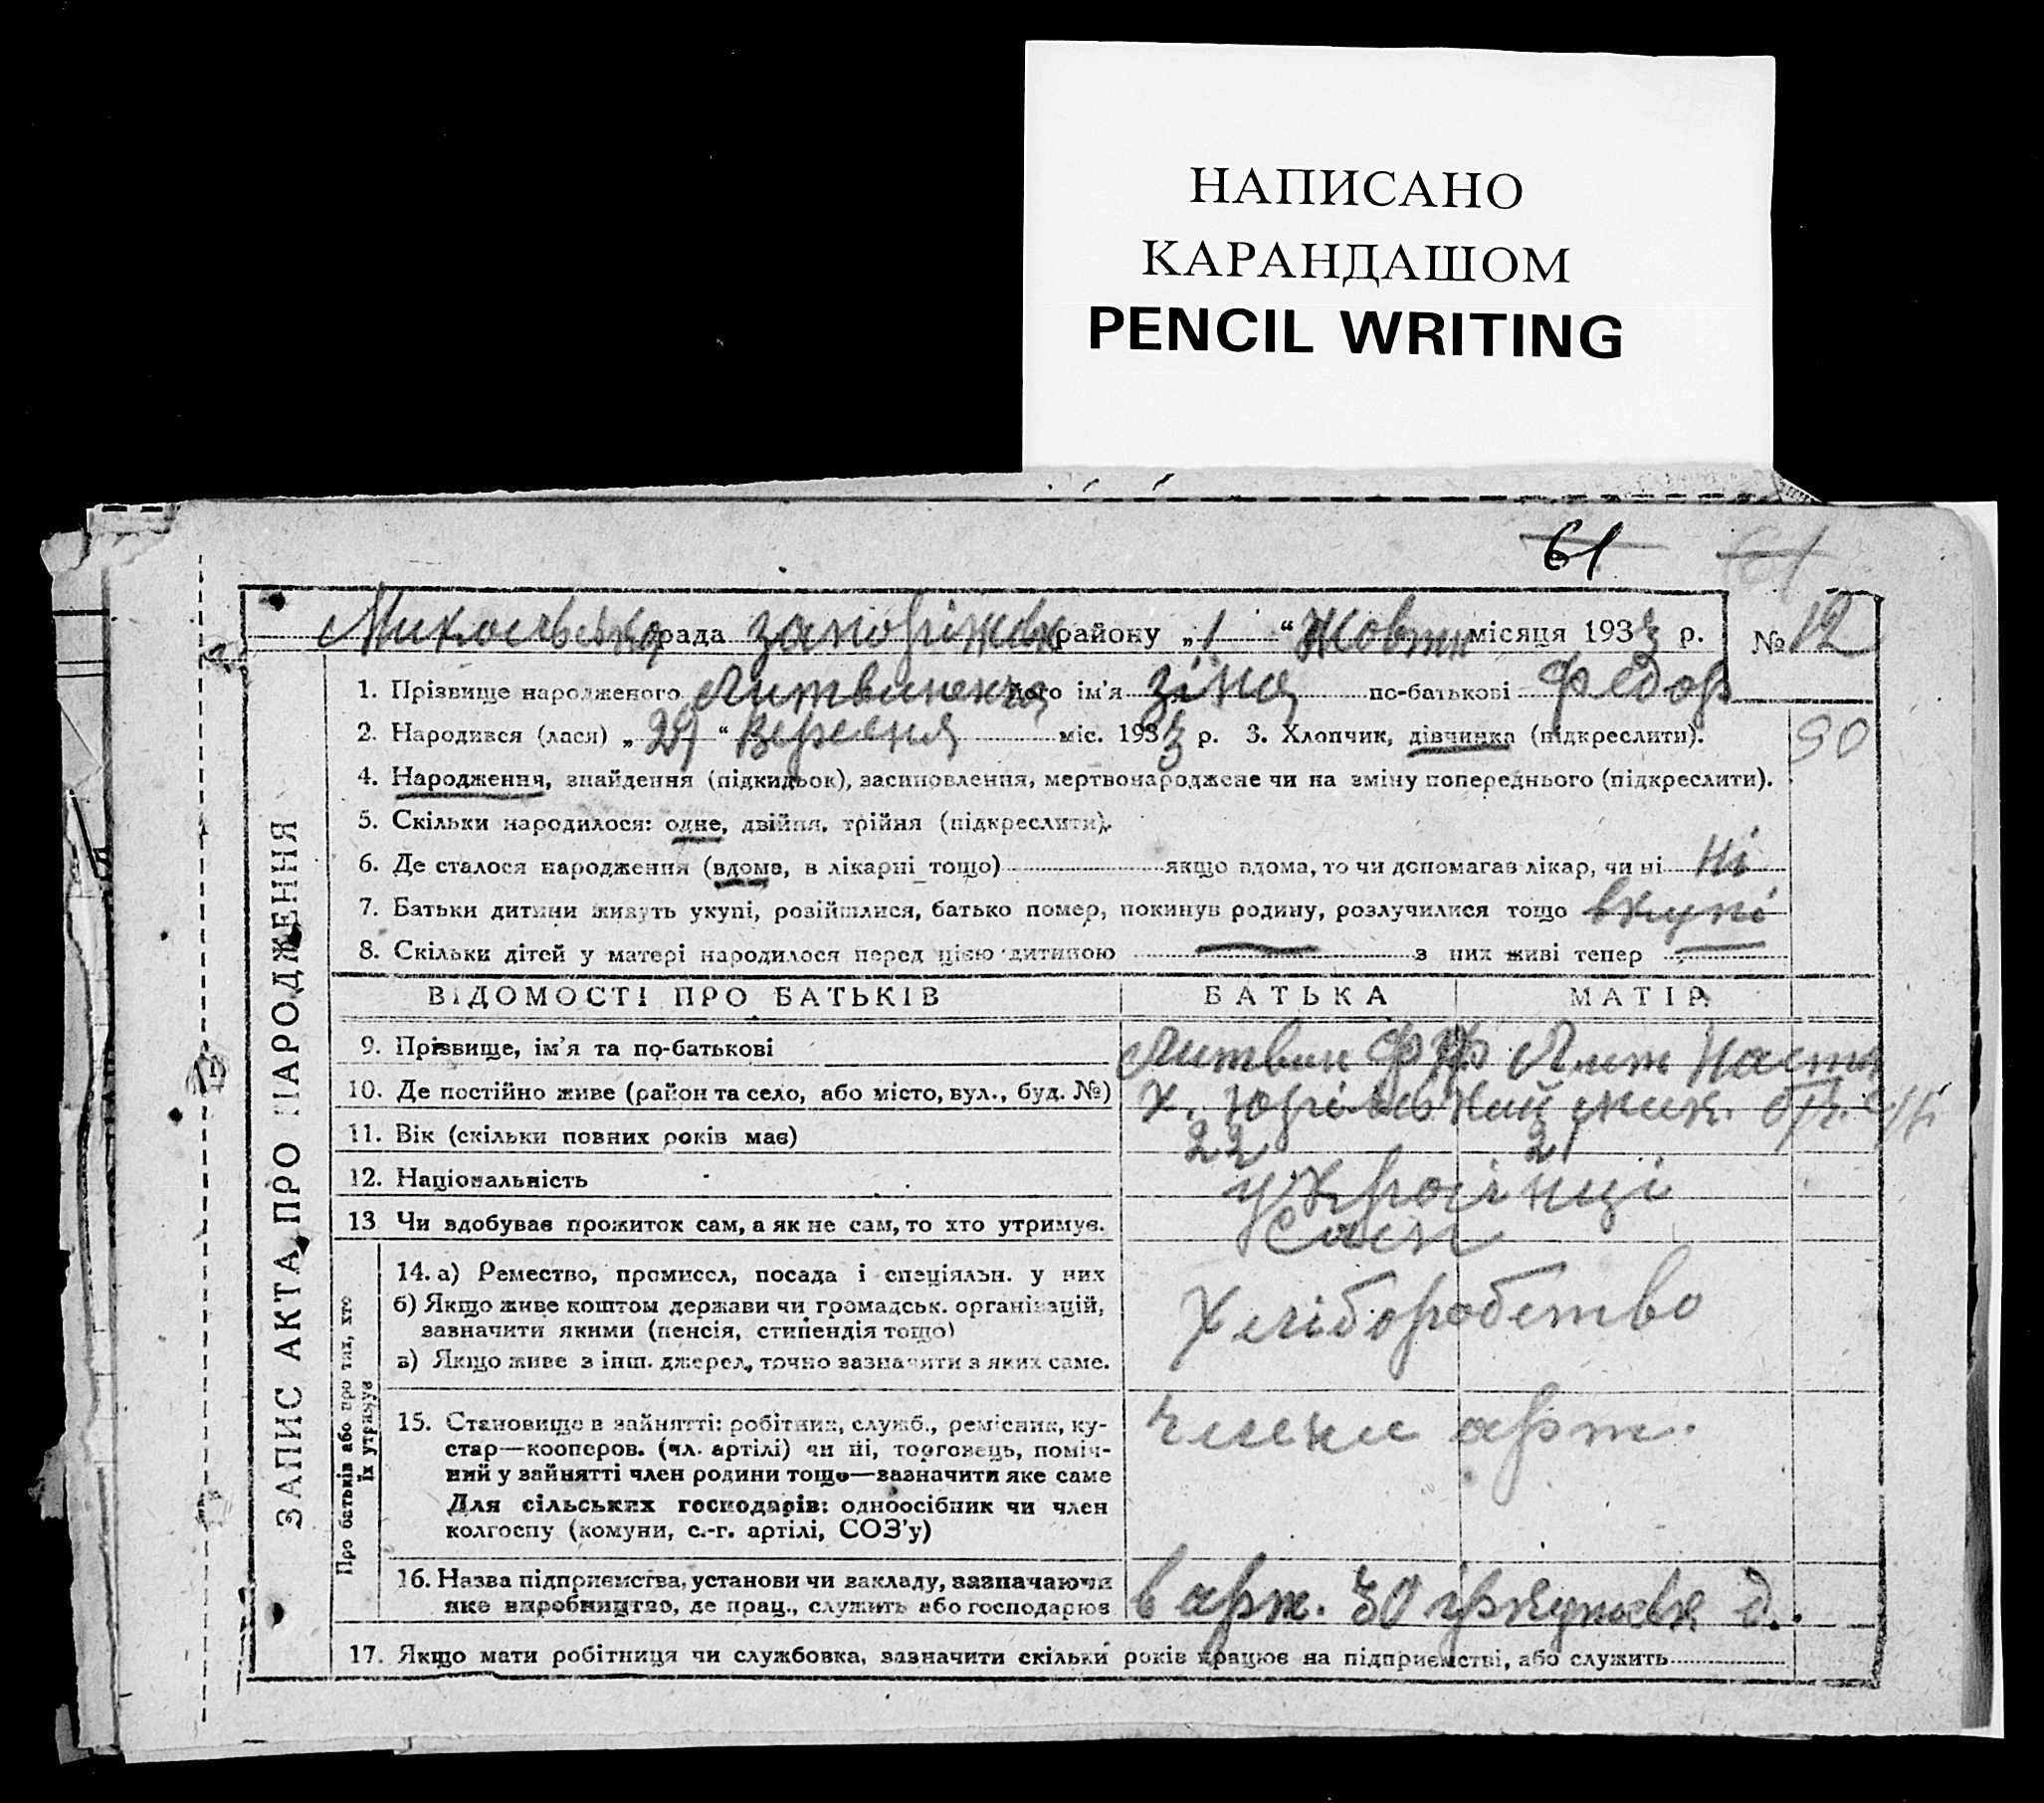 НАПИСАНО
КАРАНДАШОМ
PENCIL WRITING
61 61
рада запоріжск району „1“ Жовтн місяця 1933 р. № 12
1. Прізвище народженого Литвиненко його ім'я Зіна по-батькові Федор
2. Народився (лася) „29“ Вересня міс. 1933 р. 3. Хлопчик, дівчинка (підкреслити). 90
4. Народження, знайдення (підкидьок), засиновлення, мертвонароджене чи на зміну попереднього (підкреслити).
5. Скільки народилося: одне, двійня, трійня (підкреслити).
6. Де сталося народження (вдома, в лікарні тощо) якщо вдома, то чи допомагав лікар, чи ні Ні
7. Батьки дитини живуть укупі, розійшлися, батько помер, покинув родину, розлучилися тощо вкупі
8. Скільки дітей у матері народилося перед цією дитиною — з них живі тепер —
ЗАПИС АКТА ПРО НАРОДЖЕННЯ
ВІДОМОСТІ ПРО БАТЬКІВ БАТЬКА МАТІР
9. Прізвище, ім'я та по-батькові Литвин Лит Наст
10. Де постійно живе (район та село, або місто, вул., буд. №) х.
11. Вік (скільки повних років має) 22 21
12. Національність українці
13 Чи здобуває прожиток сам, а як не сам, то хто утримує. Сам
Про батьків або про тих, хто їх утримує
14. а) Ремество, промисел, посада і спеціяльн. у них
б) Якщо живе коштом держави чи громадськ. організацій,
зазначити якими (пенсія, стипендія тощо)
в) Якщо живе з інш. джерел, точно зазначити з яких саме.
Хліборобство
15. Становище в зайнятті: робітник, служб., ремісник, ку-
стар—кооперов. (чл. артілі) чи ні, торговець, поміч-
ний у зайнятті член родини тощо—зазначити яке саме
Для сільських господарів: одноосібник чи член
колгоспу (комуни, с.-г. артілі, СОЗ'у)
члени арт.
16. Назва підприємства, установи чи закладу, зазначаючи
яке виробництво, де прац., служить або господарює
в арт. 30 іркутськ д.
17. Якщо мати робітниця чи службовка, зазначити скільки років працює на підприємстві, або служить